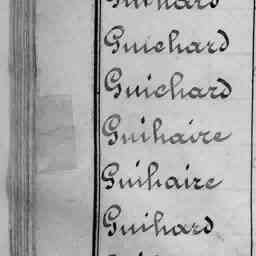 Guichard
Guichard
Guihaire
Guihaire
Guihard